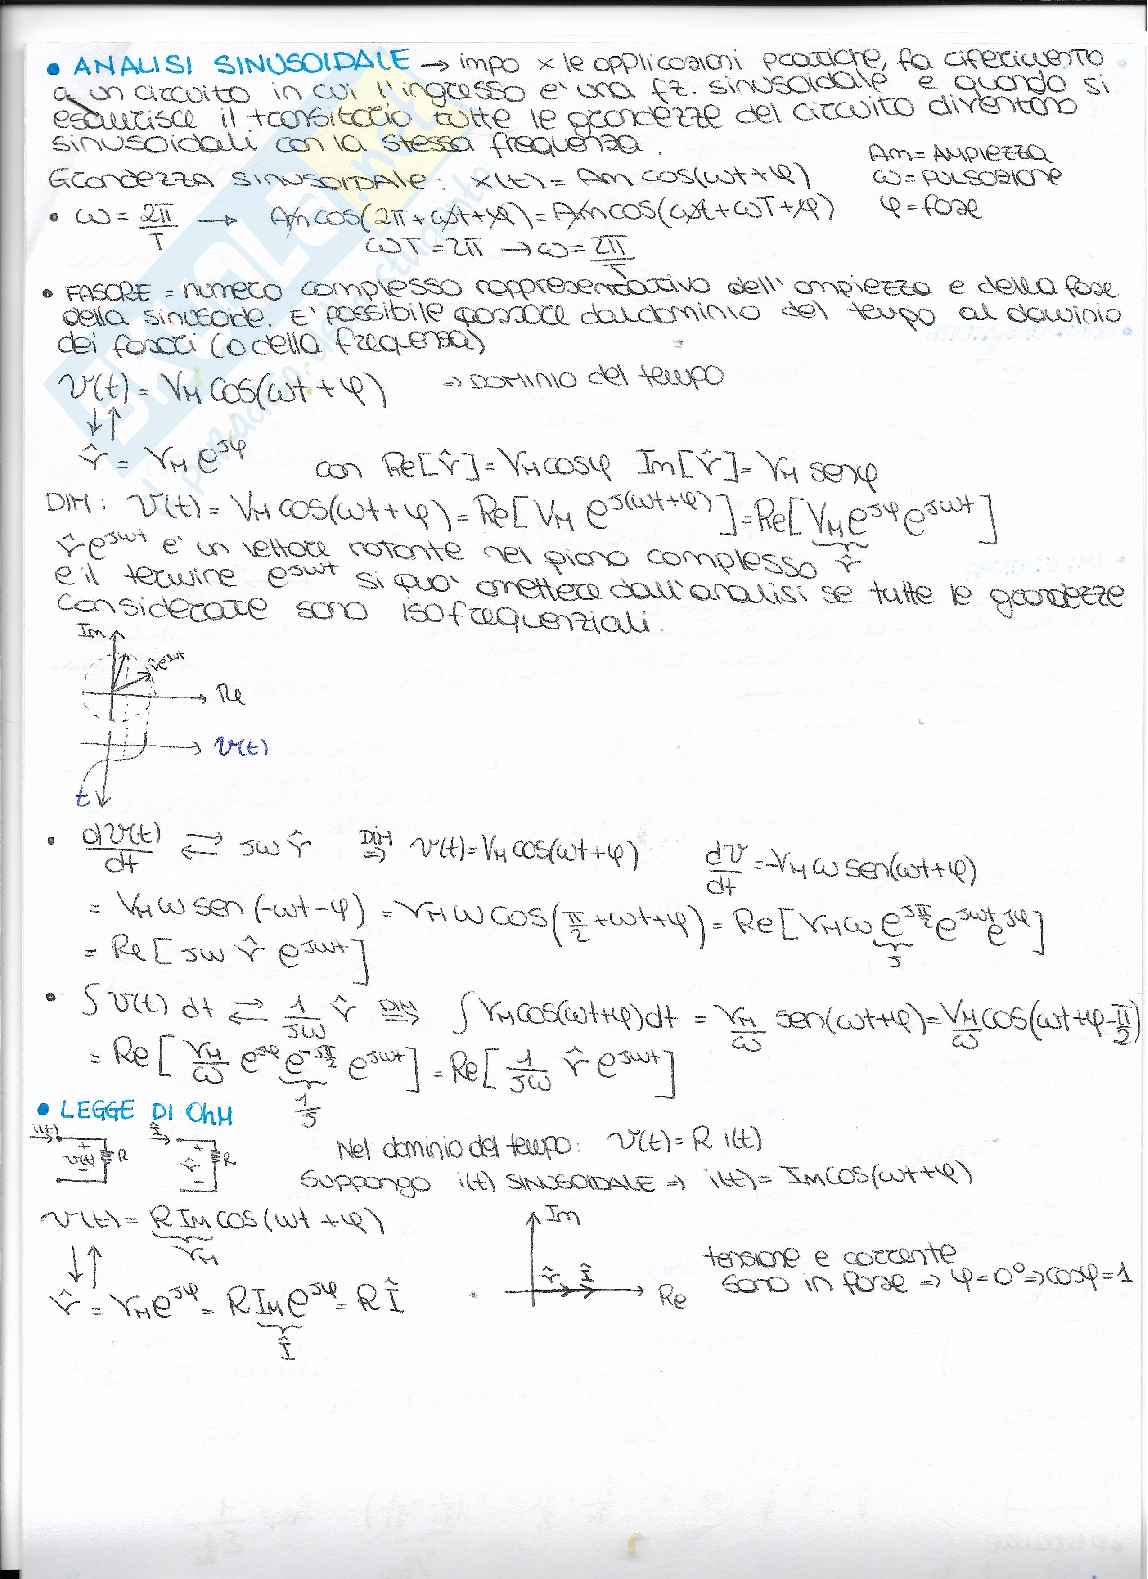 • ANALISI SINUSOIDALE → impo x le applicazioni pratiche, fa riferimento
a un circuito in cui l'ingresso e' una fz. sinusoidale e quando si
esaurisce il transitorio tutte le grandezze del circuito diventano
sinusoidali con la stessa frequenza.
Am = AMPIEZZA
Grandezza SINUSOIDALE: x(t) = Am cos(ωt+φ)
ω = PULSAZIONE
• ω = 2π/T → Am cos(2π + ωt + φ) = Am cos(ωt + ωT + φ)
φ = fase
ωT = 2π → ω = 2π/T
• FASORE = numero complesso rappresentativo dell'ampiezza e della fase
della sinusoide. E' possibile passare dal dominio del tempo al dominio
dei fasori (o della frequenza)
v(t) = VM cos(ωt + φ) ⇒ dominio del tempo
↓↑
V̂ = VM e^jφ con Re[V̂] = VM cosφ Im[V̂] = VM senφ
DIM: v(t) = VM cos(ωt + φ) = Re[VM e^j(ωt+φ)] = Re[VM e^jφ e^jωt]
V̂ e^jωt e' un vettore rotante nel piano complesso V̂
e il termine e^jωt si puo' omettere dall'analisi se tutte le grandezze
considerate sono isofrequenziali.
Im
V̂e^jωt
Re
v(t)
t
• dv(t)/dt ⇄ jω V̂ DIM ⇒ v(t) = VM cos(ωt+φ) dv/dt = -VM ω sen(ωt+φ)
= VM ω sen(-ωt-φ) = VM ω cos(π/2 + ωt + φ) = Re[VM ω e^jπ/2 e^jωt e^jφ]
j
= Re[jω V̂ e^jωt]
• ∫ v(t) dt ⇄ 1/jω V̂ DIM ⇒ ∫ VM cos(ωt+φ) dt = VM/ω sen(ωt+φ) = VM/ω cos(ωt+φ-π/2)
= Re[VM/ω e^jφ e^-jπ/2 e^jωt] = Re[1/jω V̂ e^jωt]
1/j
• LEGGE DI OhM
i(t) + v(t) - R
Î + V̂ - R
Nel dominio del tempo: v(t) = R i(t)
Suppongo i(t) SINUSOIDALE ⇒ i(t) = IM cos(ωt+φ)
v(t) = R IM cos(ωt + φ)
VM
↓↑
V̂ = VM e^jφ = R IM e^jφ = R Î
Î
Im
V̂ Î
Re
tensione e corrente
sono in fase ⇒ φ = 0° ⇒ cosφ = 1